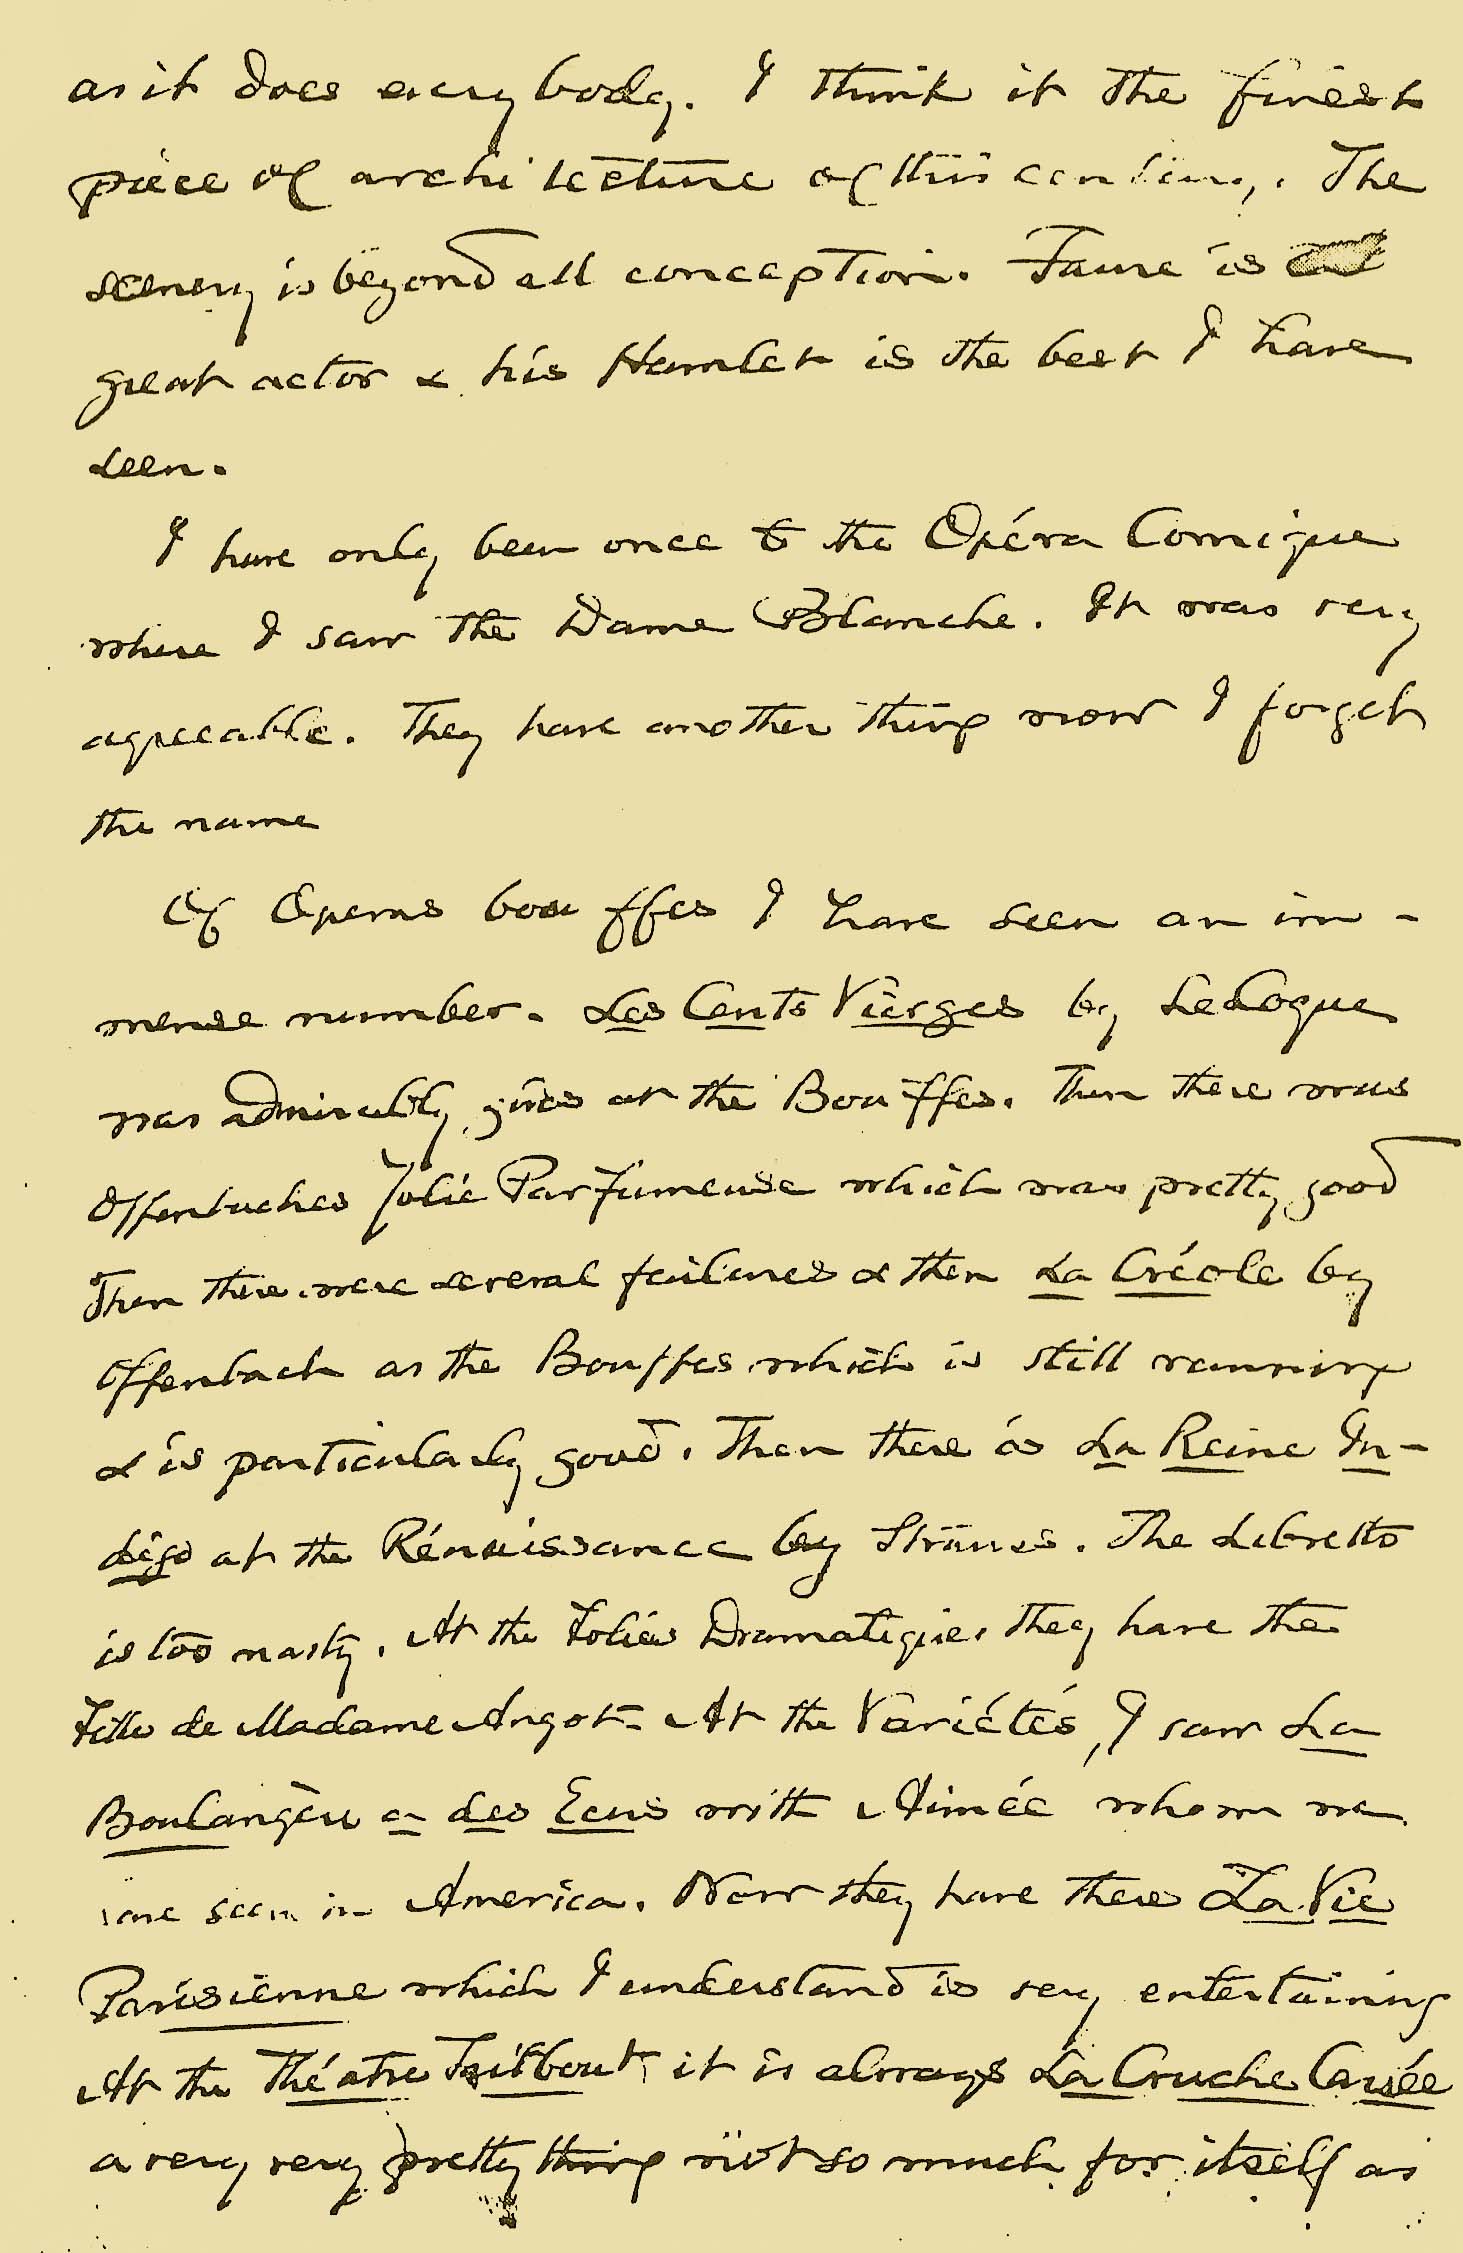 as it does everybody. I think it the finest
piece of architecture of this century. The
scenery is beyond all conception. Faure is
great actor & his Hamlet is the best I have
seen.
I have only been once to the Opéra Comique
where I saw the Dame Blanche. It was very
agreeable. They have another thing now I forget
the name
Of Operas bouffes I have seen an im-
mense number. Les Cents Vierges by LeCoque
was admirably given at the Bouffes. Then there was
Offenbaches Jolie Parfumeuse which was pretty good
Then there were several failures & then La Créole by
Offenbach at the Bouffes which is still running
& is particularly good. Then there is La Reine In-
digo at the Rénaissance by Strauss. The Libretto
is too nasty. At the Folies Dramatique they have the
Fille de Madame Angot - At the Variétés, I saw La
Boulangère a des Ecus with Aimée whom we
have seen in America. Now they have there La Vie
Parisienne which I understand is very entertaining
At the Théatre Taitbout it is always La Cruche Cassée
a very very pretty thing not so much for itself as